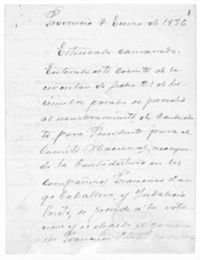 Provencio 7 Enero de 1936
Estimado camarada:
Enterado este Comite de la
circular de fecha 21 de Di-
ciembre pasado se procedio
al nombramiento de Candida-
to para Presidente para el
Comite Nacional,
do la Candidatura en los
compañeros Francisco Lar-
go Caballero y Indalecio
Prieto, se procede a la vota-
ción y es elegido el
Francisco Largo Caballero